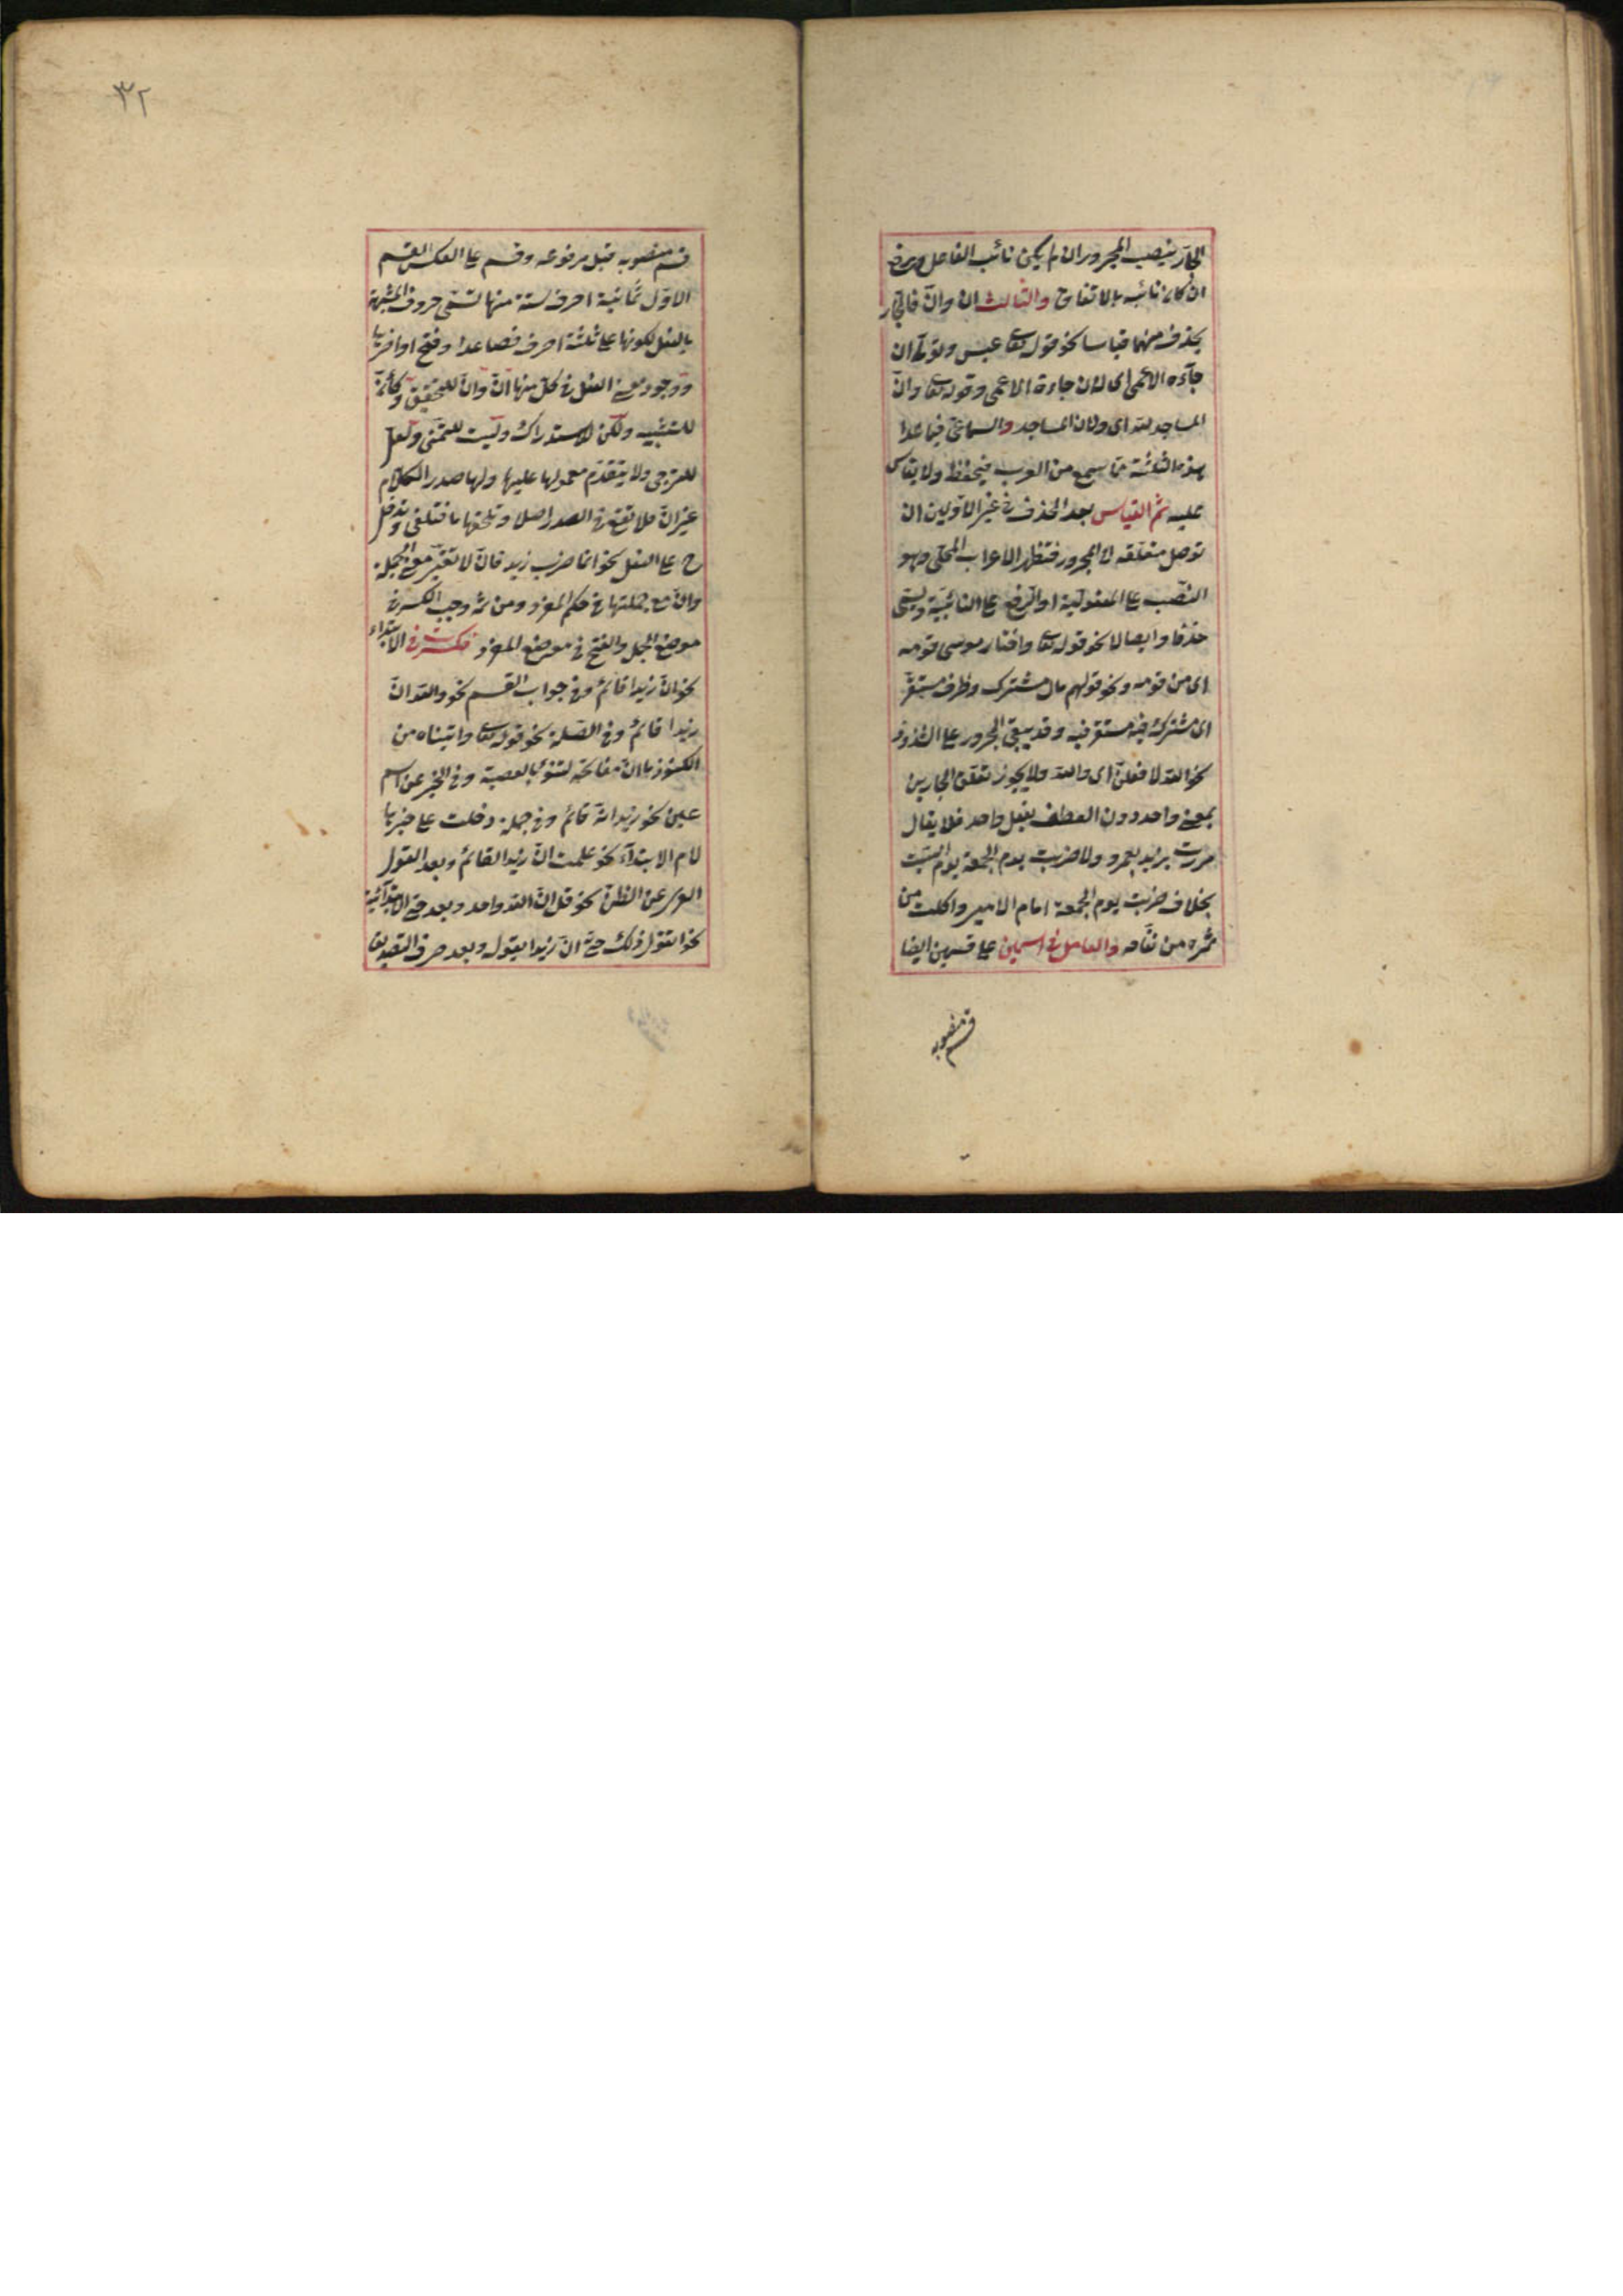 الجارّ ينصب المجرور ان لم يكن نائب الفاعل ويرفع
ان كان نائبه بالاتفاق والثالث ان وانّ فالجار
يحذف منهما قياسا نحو قوله تعا عبس وتولّى ان
جآءه الاعمى اى لان جاءه الاعمى وقوله تعا وانّ
المساجد لله اى ولان المساجد والسماعىّ فيما عدا
هذه الثلثة مما سمع من العرب فيحفظ ولا يقاس
عليه ثم القياس بعد الحذف فى غير الاوّلين ان
توصل متعلّقه الى المجرور فتظهر الاعراب المحلّى وهو
النصب على المفعوليّة او الرّفع على النائبيّة ويسمّى
حذفا وايصالا نحو قوله تعا واختار موسى قومه
اى من قومه ونحو قولهم مال مشترك وظرف مستقرّ
اى مشترك فيه مستقر فيه وقد يبقى المجرور على الشذوذ
نحو الله لافعلنّ اى والله ولا يجوز تعلّق الجارين
بمعنى واحد دون العطف بفعل واحد فلا يقال
مررت بزيد بعمرو ولا ضربت يوم الجمعة يوم السّبت
بخلاف ضربت يوم الجمعة امام الامير واكلت من
ثمره من تفّاحه والعامل فى اسمين على قسمين ايضا
قسم منصوبه
٣٢
قسم منصوبه قبل مرفوعه وقسم على العكس القسم
الاوّل ثمانية احرف ستة منها تسمّى حروف المشبهة
بالفعل لكونها على ثلثة احرف فصاعدا وفتح اواخرها
ووجود معنى الفعل فى كلّ منها انّ وانّ للتحقيق وكأنّ
للتشبيه ولكن للاستدراك وليت للتمنّى ولعلّ
للترجى ولا يتقدّم معمولها عليها ولها صدر الكلام
غير انّ فلا تقع فى الصدر اصلا وتلحقها ما فتلغى وتدخل
ح على الفعل نحو انما ضرب زيد فانّ لا تغيّر معنى الجملة
وانّ مع جملتها فى حكم المفرد ومن ثمّه وجب الكسر فى
موضع الجمل والفتح فى موضع المفرد فكسرت فى الابتداء
نحو انّ زيدا قائم وفى جواب القسم نحو والله انّ
زيدا قائم وفى الصّلة نحو قوله تعا واتيناه من
الكنوز ما انّ مفاتحه لتنوأ بالعصبة وفى الخبر عن اسم
عين نحو زيد انّه قائم وفى جملة دخلت على خبرها
لام الابتدآء نحو علمت انّ زيدا لقائم وبعد القول
العرى عن الظن نحو قل انّ الله واحد وبعد حتى الابتدآئية
نحو اتقول ذلك حتى انّ زيدا يقوله وبعد حرف التصديق